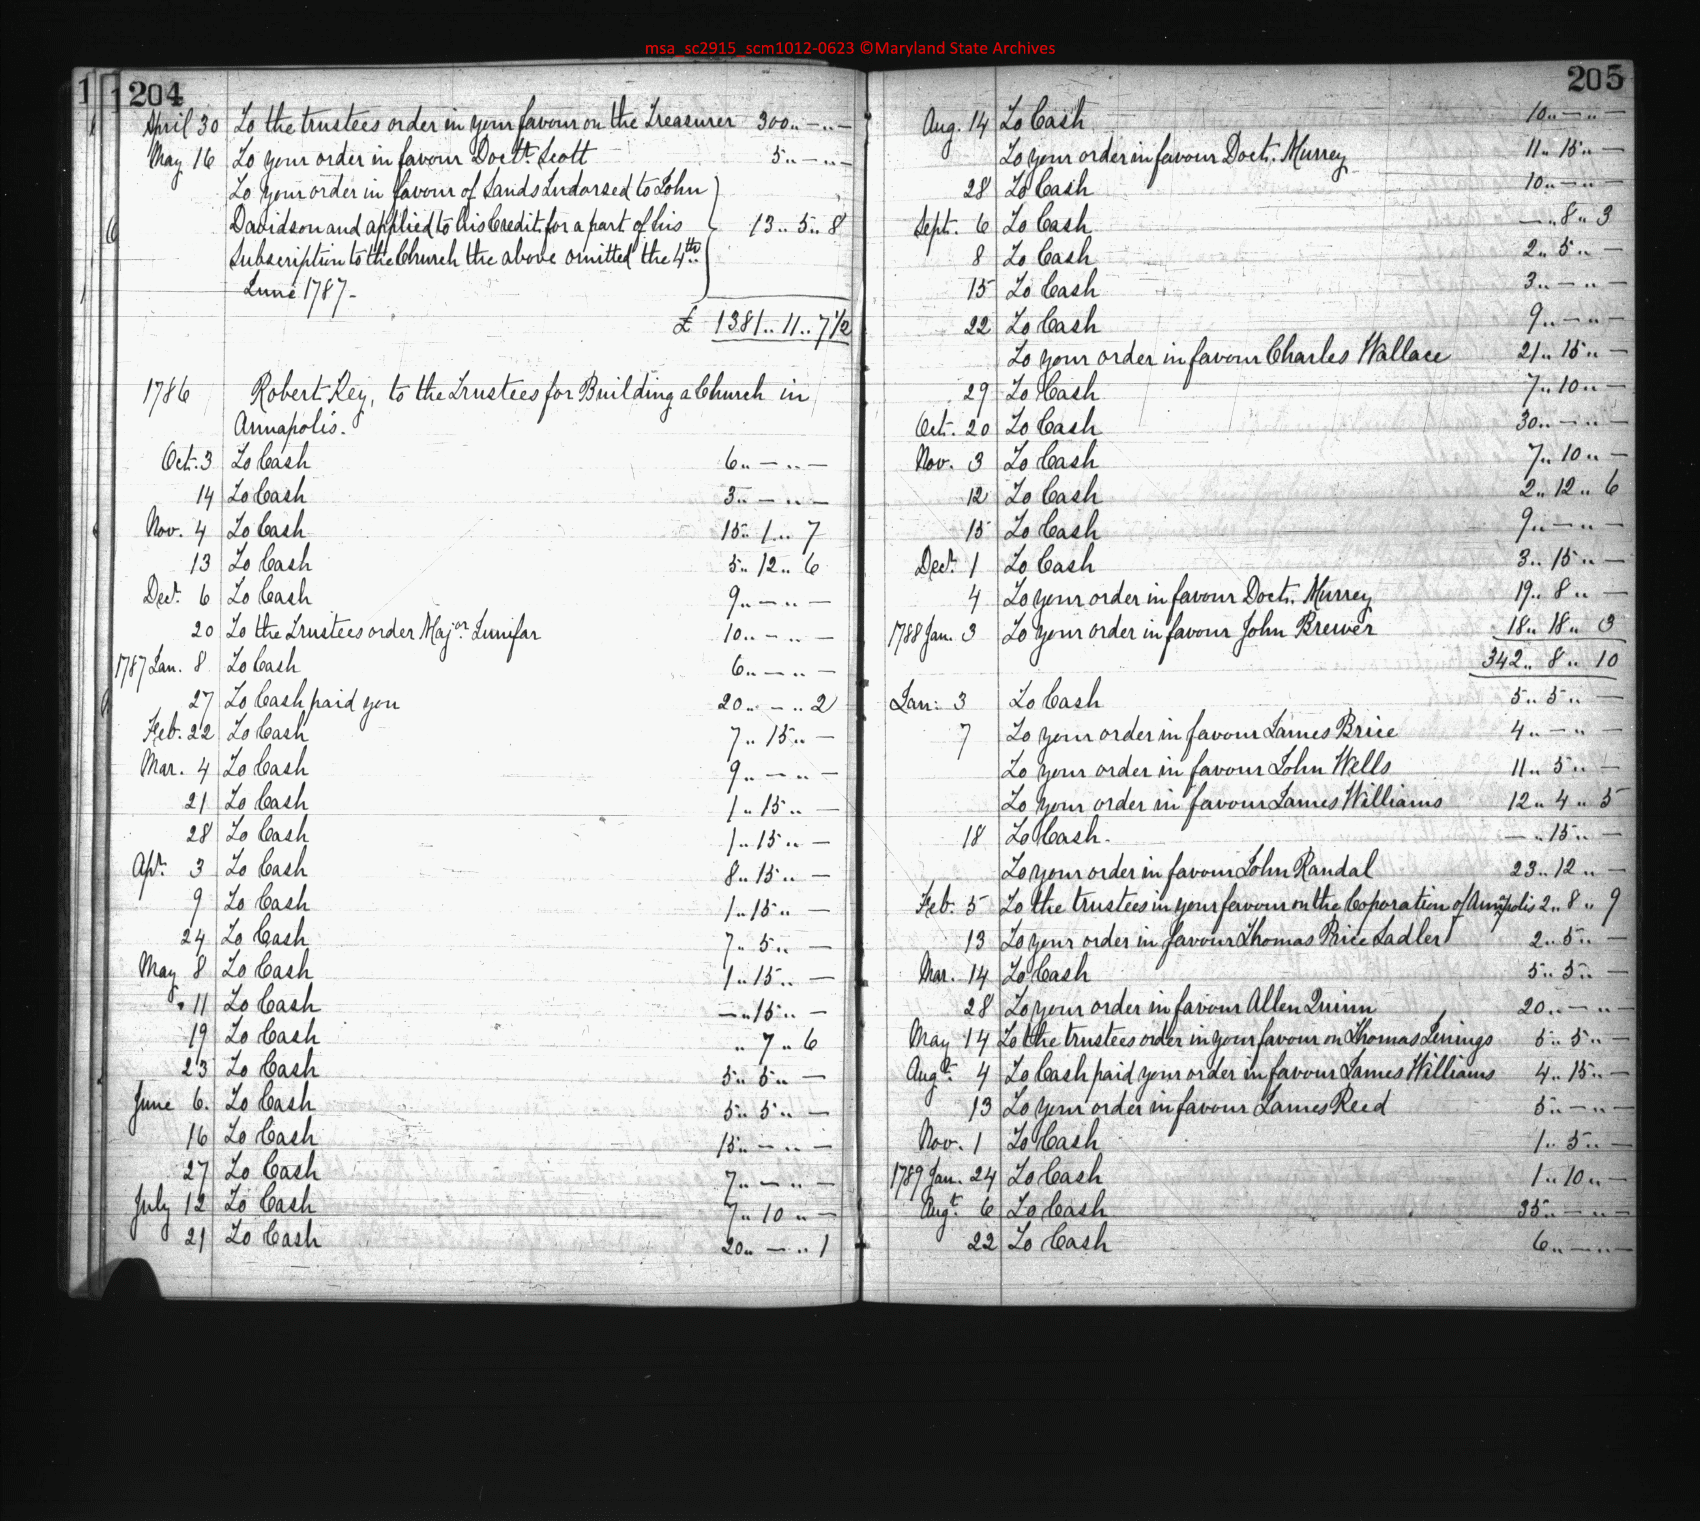 msa_sc2915_scm1012-0623 ©Maryland State Archives
204
April 30 To the trustees order in your favour on the Treasurer 300..—..—
May 16 To your order in favour Doctr. Scott 5..—..—
To your order in favour of Sands Indorsed to John
Davidson and applied to his Credit for a part of his 13..5..8
Subscription to the Church the above omitted the 4th
June 1787-
£ 1381..11..7½
1786 Robert Key, to the Trustees for Building a Church in
Annapolis.
Oct. 3 To Cash 6..—..—
14 To Cash 3..—..—
Nov. 4 To Cash 15..1..7
13 To Cash 5..12..6
Decr. 6 To Cash 9..—..—
20 To the Trustees order Major. Junifar 10..—..—
1787 Jan. 8 To Cash 6..—..—
27 To Cash paid you 20..—..2
Feb. 22 To Cash 7..15..—
Mar. 4 To Cash 9..—..—
21 To Cash 1..15..—
28 To Cash 1..15..—
Apr. 3 To Cash 8..15..—
9 To Cash 1..15..—
24 To Cash 7..5..—
May 8 To Cash 1..15..—
11 To Cash —..15..—
19 To Cash ..7..6
23 To Cash 5..5..—
June 6. To Cash 5..5..—
16 To Cash 15..—..—
27 To Cash 7..—..—
July 12 To Cash 7..10..—
21 To Cash 20..—..1
205
Aug. 14 To Cash 10..—..—
To your order in favour Doct. Murrey 11..15..—
28 To Cash 10..—..—
Sept. 6 To Cash —..8..3
8 To Cash 2..5..—
15 To Cash 3..—..—
22 To Cash 9..—..—
To your order in favour Charles Wallace 21..15..—
29 To Cash 7..10..—
Oct. 20 To Cash 30..—..—
Nov. 3 To Cash 7..10..—
12 To Cash 2..12..6
15 To Cash 9..—..—
Decr. 1 To Cash 3..15..—
4 To your order in favour Doct. Murrey 19..8..—
1788 Jan. 3 To your order in favour John Brewer 18..18..3
342..8..10
Jan: 3 To Cash 5..5..—
7 To your order in favour James Brice 4..—..—
To your order in favour John Wells 11..5..—
To your order in favour James Williams 12..4..5
18 To Cash. —..15..—
To your order in favour John Randal 23..12..—
Feb. 5 To the trustees in your favour on the Coporation of Annapolis 2..8..9
13 To your order in favour Thomas Price Sadler 2..5..—
Mar. 14 To Cash 5..5..—
28 To your order in favour Allen Quinn 20..—..—
May 14 To the trustees order in your favour on Thomas Jenings 5..5..—
Augt. 4 To Cash paid your order in favour James Williams 4..15..—
13 To your order in favour James Reed 5..—..—
Nov. 1 To Cash 1..5..—
1789 Jan. 24 To Cash 1..10..—
Augt. 6 To Cash 35..—..—
22 To Cash 6..—..—